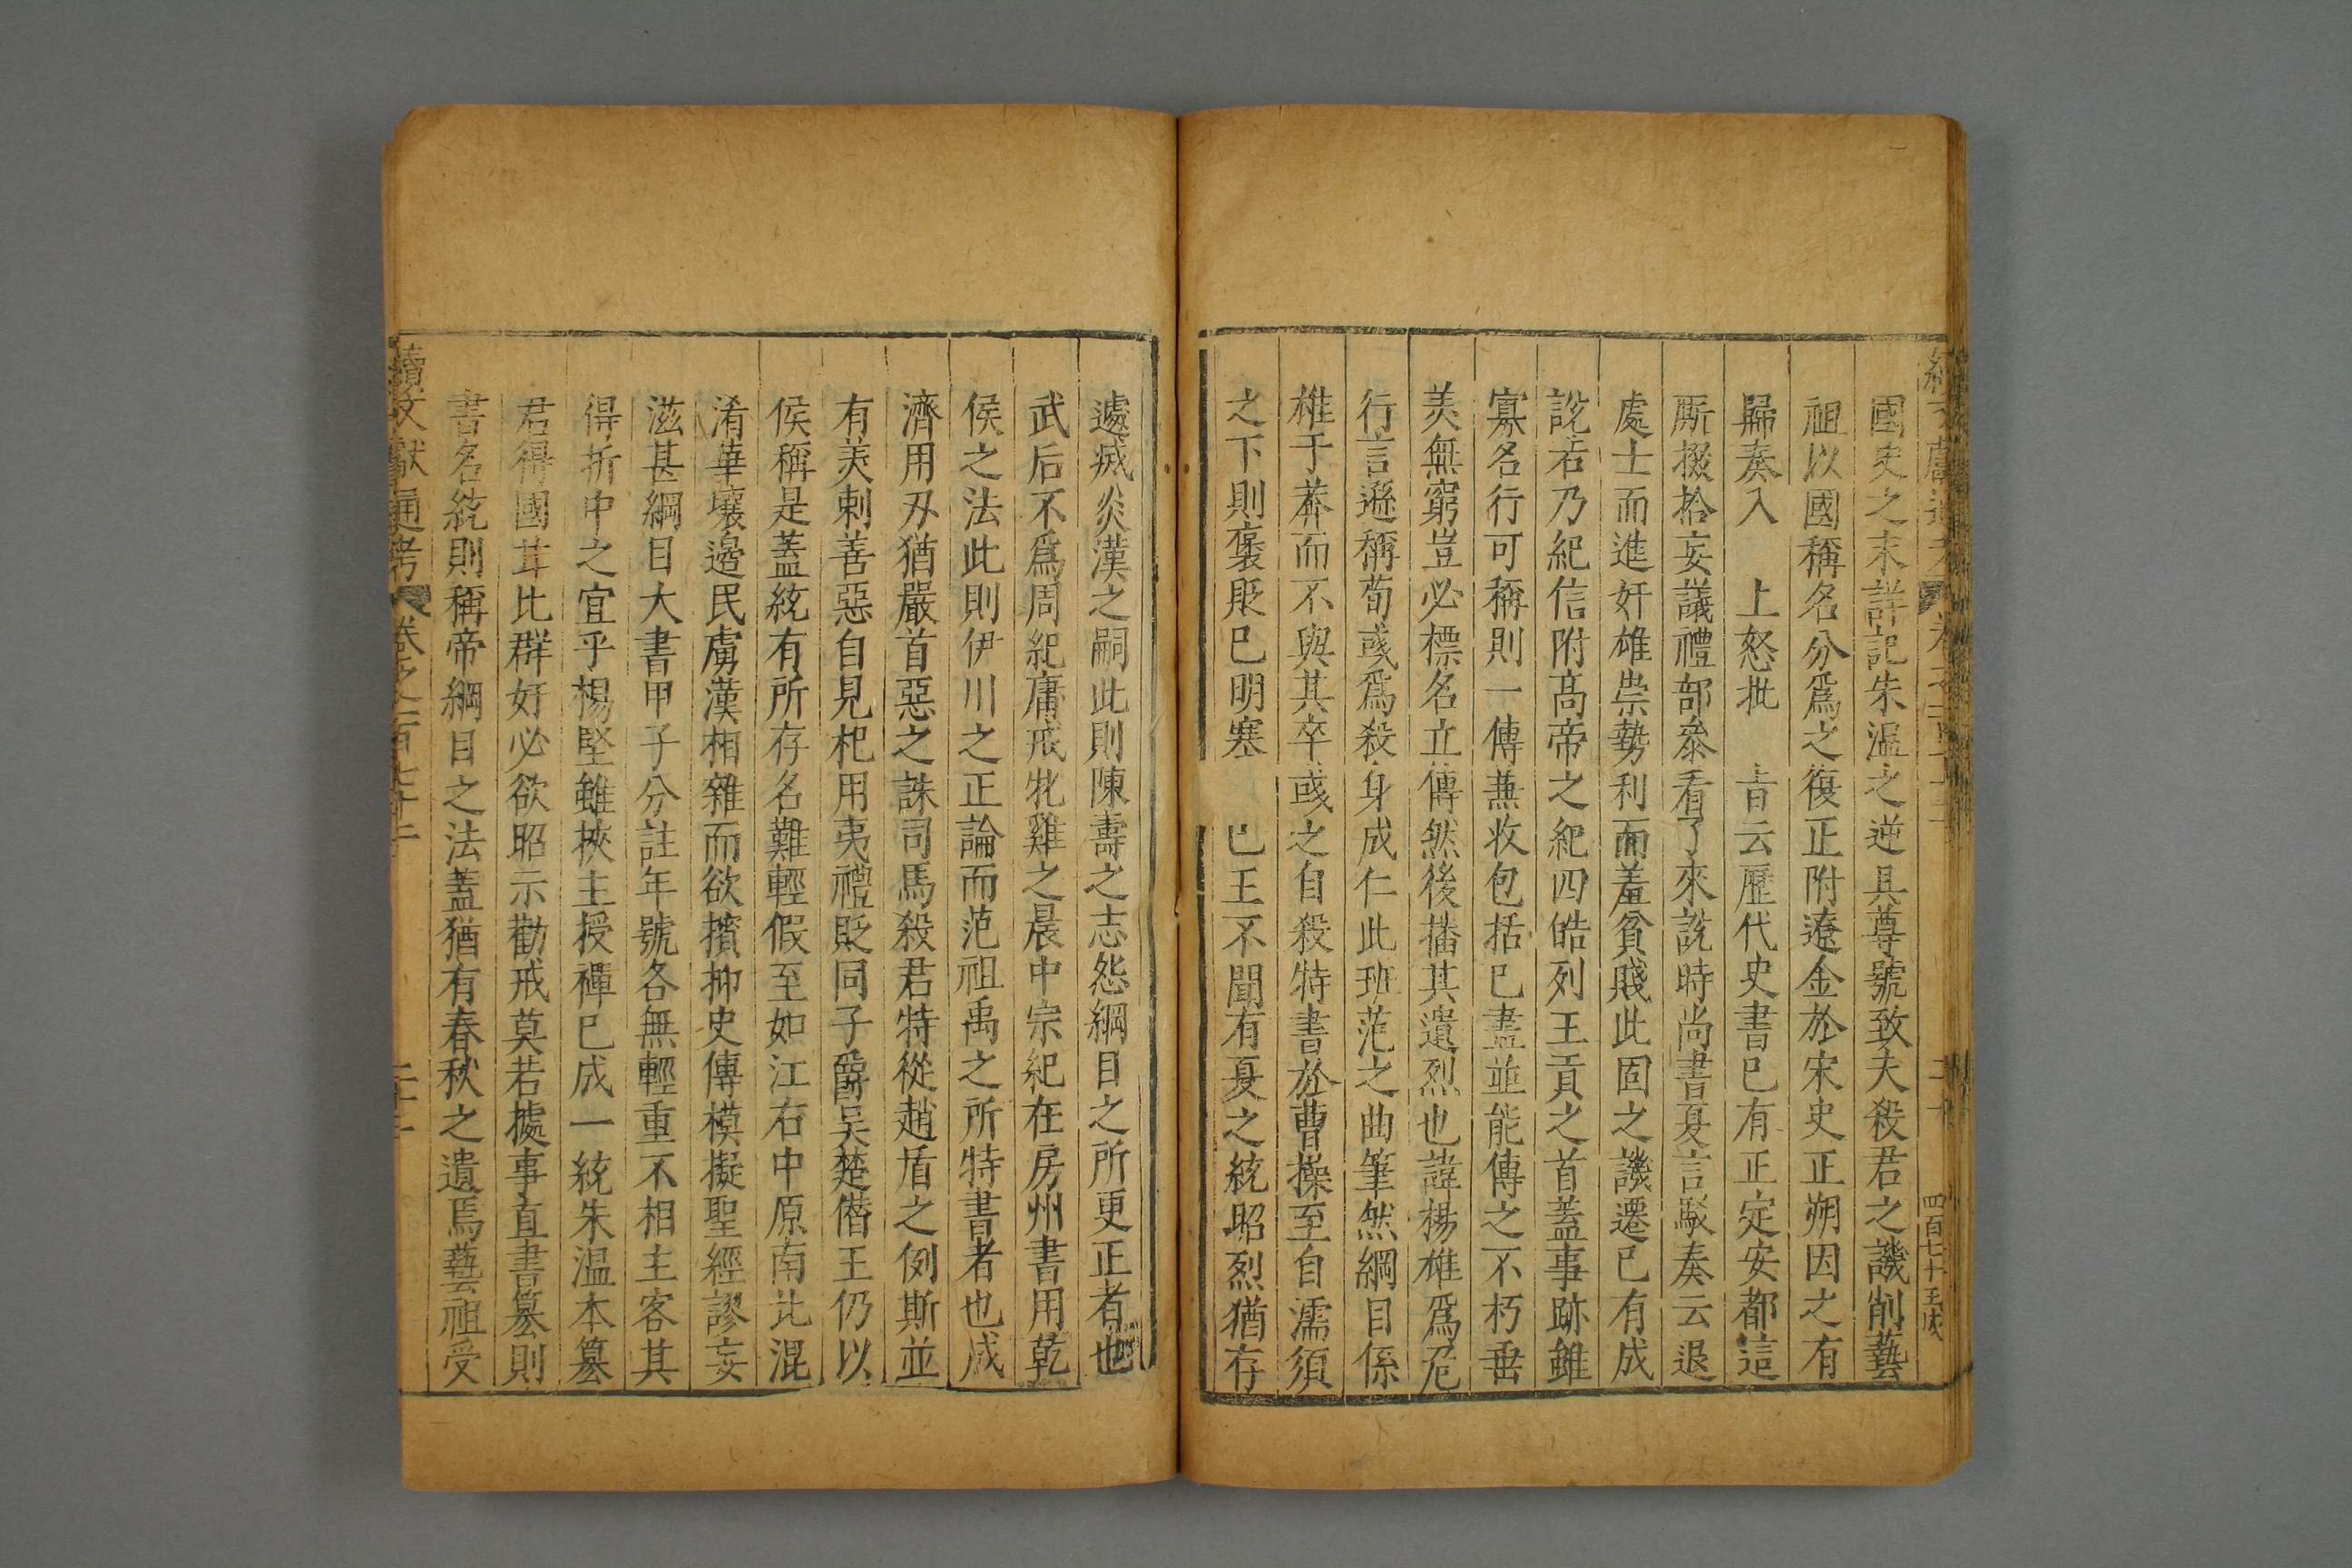 國史之末詳記朱溫之逆具尊號致夫殺君之譏削藝
祖以國稱名分爲之復正附遼金於宋史正朔因之有
歸奏入　上怒批　旨云歷代史書已有正定安都這
厮掇拾妄議禮部參看了來說時尚書夏言駁奏云退
處士而進奸雄崇勢利而羞貧賤此固之譏遷已有成
說若乃紀信附高帝之紀四皓列王貢之首蓋事跡雖
寡名行可稱則一傳兼收包括已盡並能傳之不朽垂
美無窮豈必標名立傳然後播其遺烈也諱楊雄爲危
行言遜稱荀彧爲殺身成仁此班范之曲筆然綱目係
雄于莽而不與其卒彧之自殺特書於曹操至自濡須
之下則褒貶已明寒　已王不聞有夏之統昭烈猶存
遽滅炎漢之嗣此則陳壽之志怨綱目之所更正者也
武后不爲周紀庸戒牝雞之晨中宗紀在房州書用乾
侯之法此則伊川之正論而范祖禹之所特書者也成
濟用刃猶嚴首惡之誅司馬殺君特從趙盾之例斯並
有美刺善惡自見杞用夷禮貶同子爵吳楚僭王仍以
侯稱是蓋統有所存名難輕假至如江右中原南北混
淆華壤邊民虜漢相雜而欲擯抑史傳模擬聖經謬妄
滋甚綱目大書甲子分註年號各無輕重不相主客其
得折中之宜乎楊堅雖挾主授禪已成一統朱溫本篡
君得國茸比群奸必欲昭示勸戒莫若據事直書篡則
書名統則稱帝綱目之法蓋猶有春秋之遺焉藝祖受
續文獻通考　卷之一百七十二
四百七十五